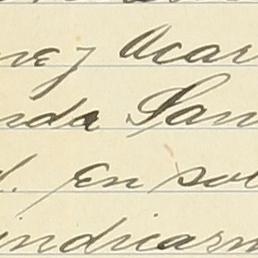 nez Acar
nda San
d. En sol
indicarn